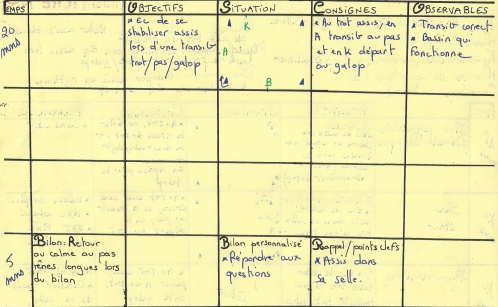 TEMPS OBJECTIFS SITUATION CONSIGNES OBSERVABLES
20 mns
* Ec de se
stabiliser assis
lors d'une transit°
trot/pas/galop
K
A
B
* Au trot assis, en
A transit° au pas
et en K départ
au galop
* Transit° correct
* Bassin qui
fonctionne
5 mns
Bilan: Retour
au calme au pas
rênes longues lors
du bilan
Bilan personnalisé
* Répondre aux
questions
Rappel/points clefs
* Assis dans
sa selle.